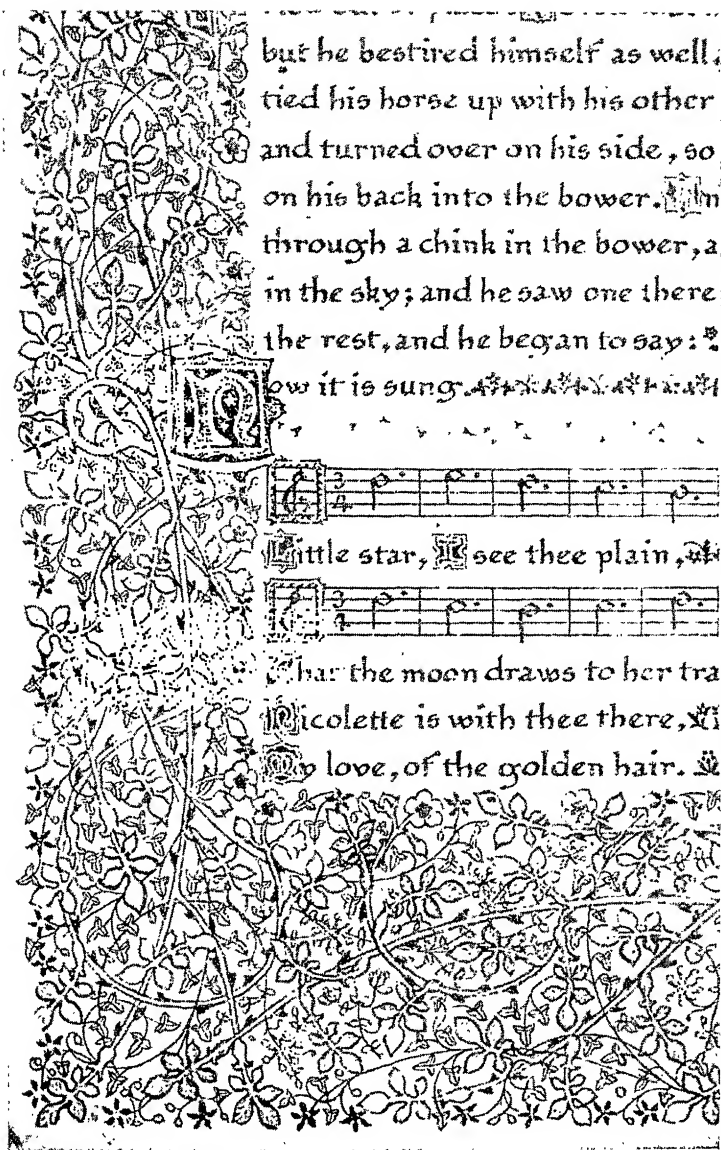 but he bestired himself as well,
tied his horse up with his other
and turned over on his side, so
on his back into the bower.
through a chink in the bower, a
in the sky; and he saw one there
the rest, and he began to say:
Now it is sung.
3 4
Little star, I see thee plain,
3 4
That the moon draws to her tra
Nicolette is with thee there,
My love, of the golden hair.